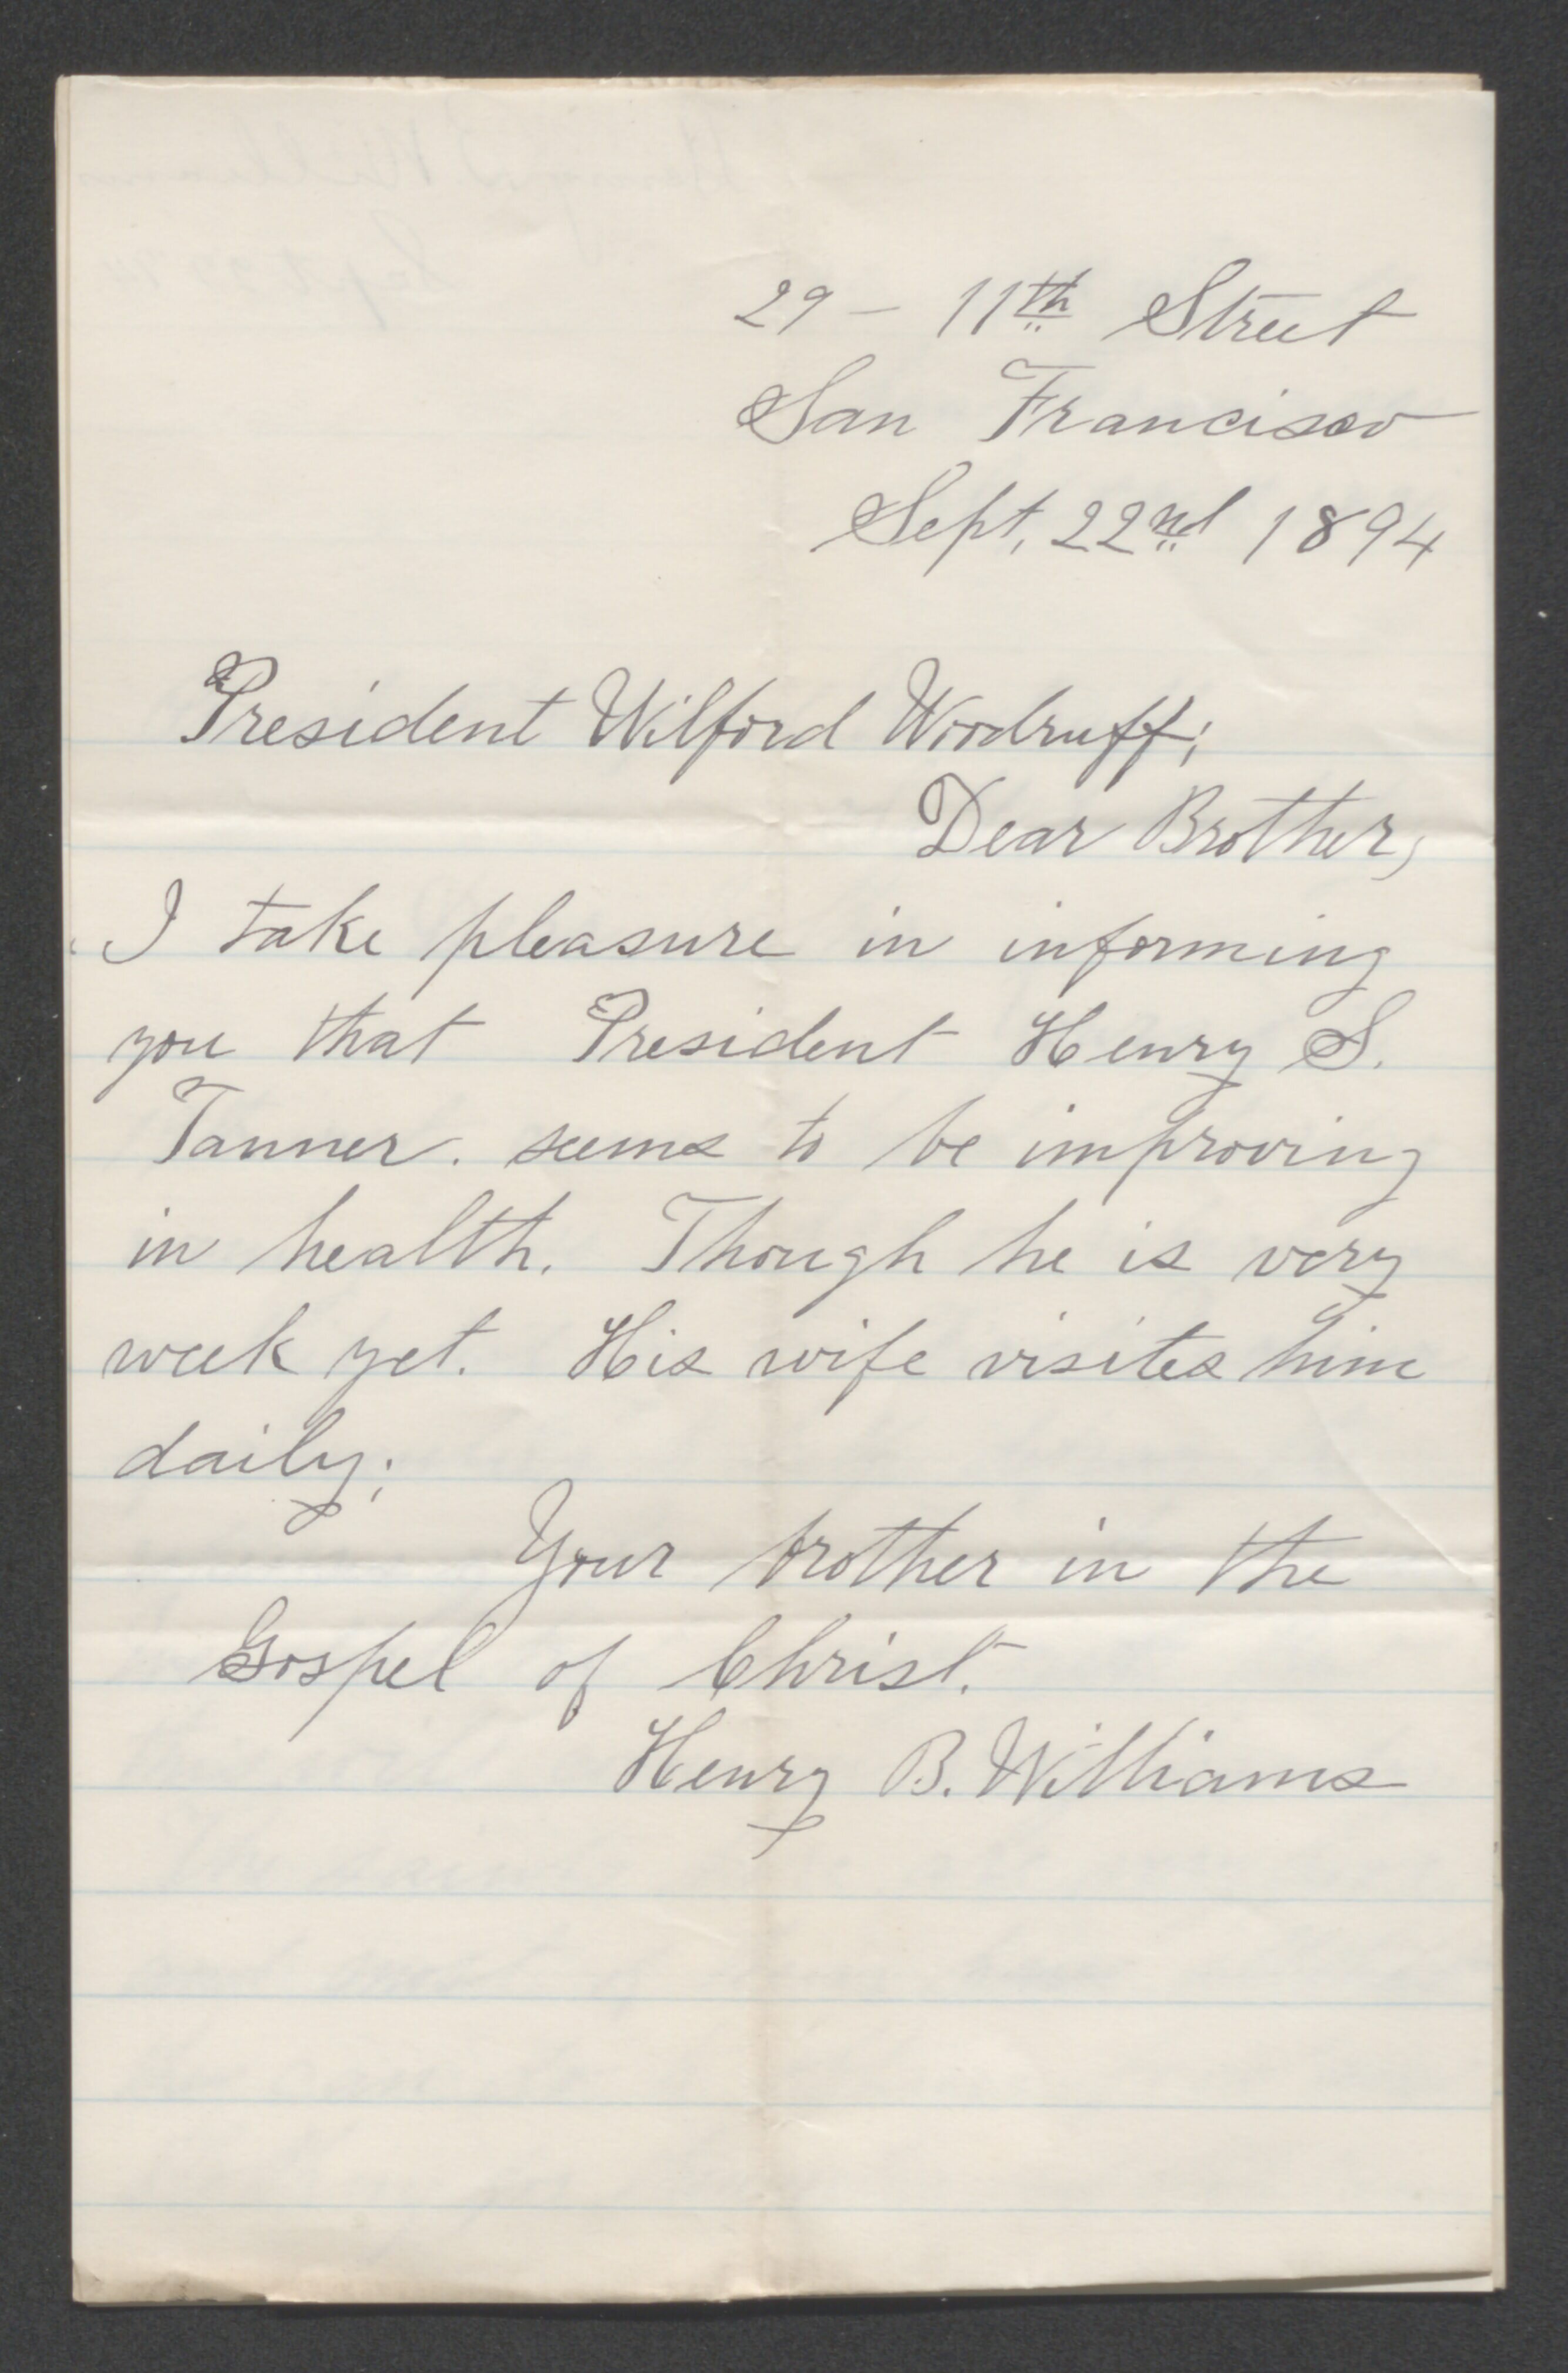 29 – 11th Street
San Francisco
Sept, 22nd 1894
President Wilford Woodruff;
Dear Brother,
I take pleasure in informing
you that President Henry S.
Tanner. seems to be improving
in health. Though he is very
week yet. His wife visites him
daily;
Your brother in the
Gospel of Christ.
Henry B. Williams